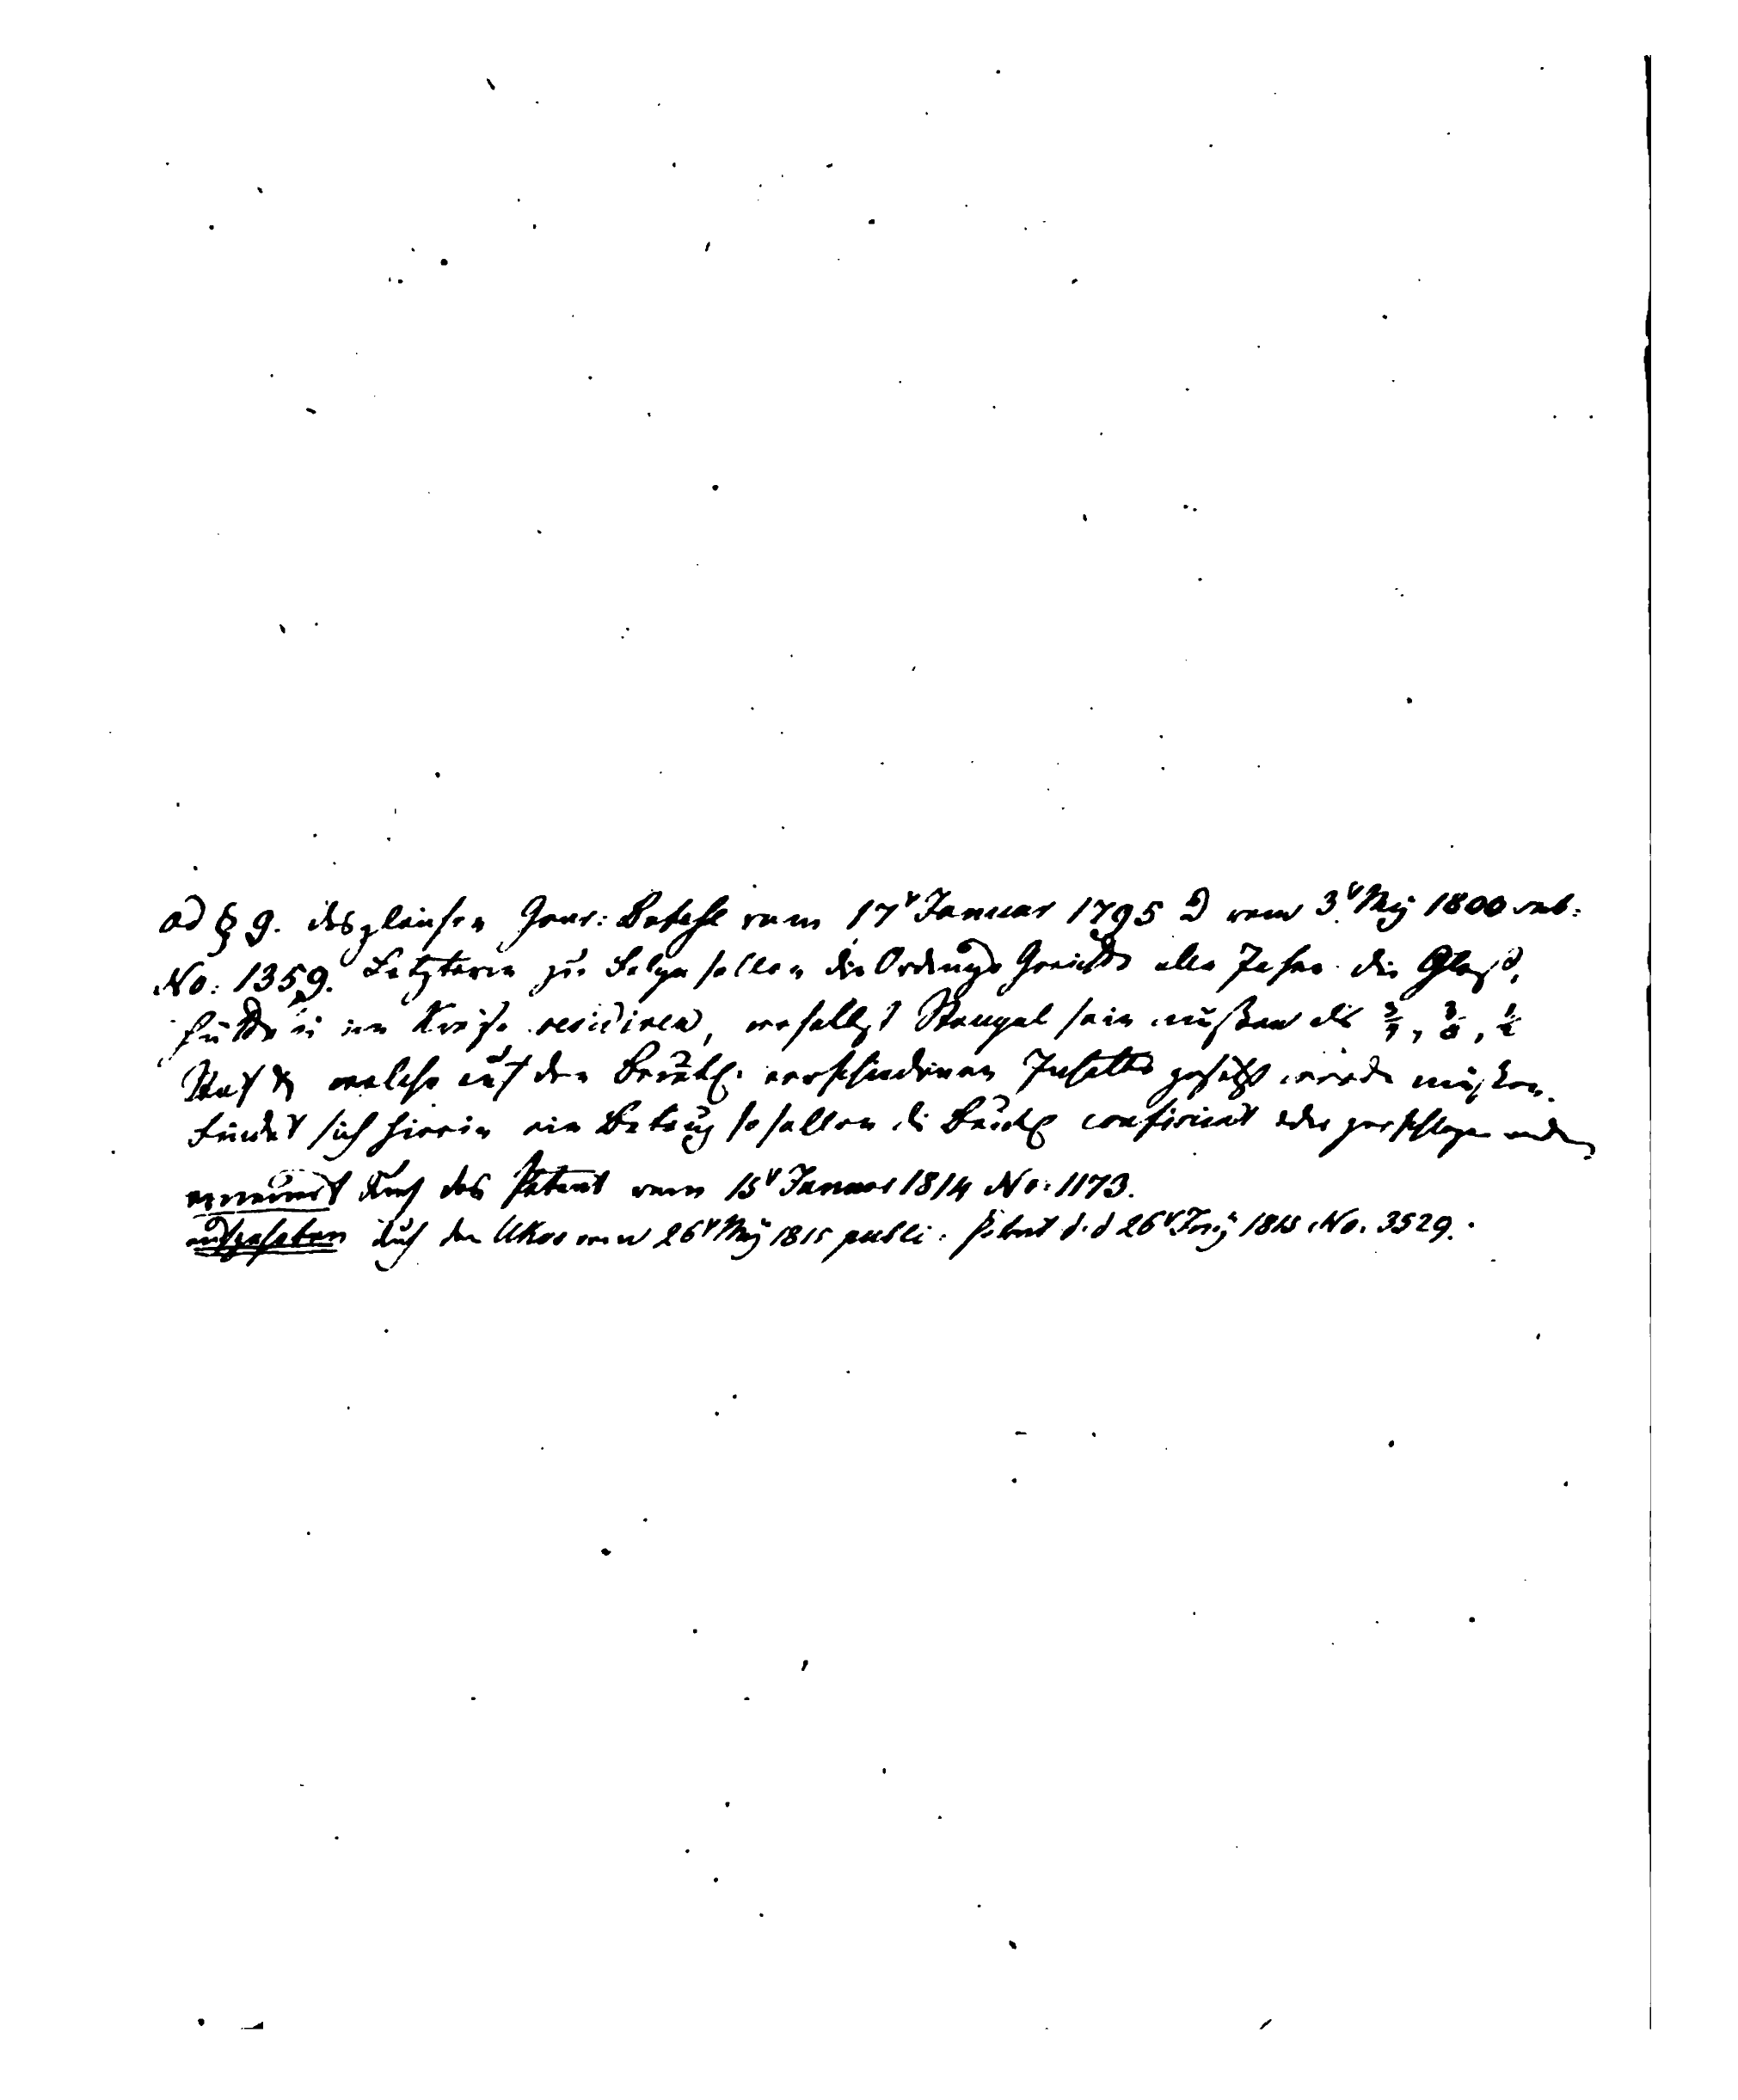 ad § 9. desgleichen Gour: Befehl vom 17t Januar 1795 & vom 3t May 1800 sub:
No: 1359. Letzterem zu Folge sollen die Ordnungs Gerichte alle Jahre die Glas,
hütten im Kreise revidiren, woselbst Stempel sein müßen als 3/4, 3/8, 1/2
Stof welche auf den Bouteil. verschiedenen Inhalts gesetzt werden müßen.
Findet sich hierin ein Betrug so sollen die Bouteil confiscirt oder zerschlagen werden
erneuert durch das Patent vom 15t Januar 1814 No: 1173.
aufgehoben durch den Ukas vom 26t May 1815 publi: Patent d. d 26t 1815 No. 3529.